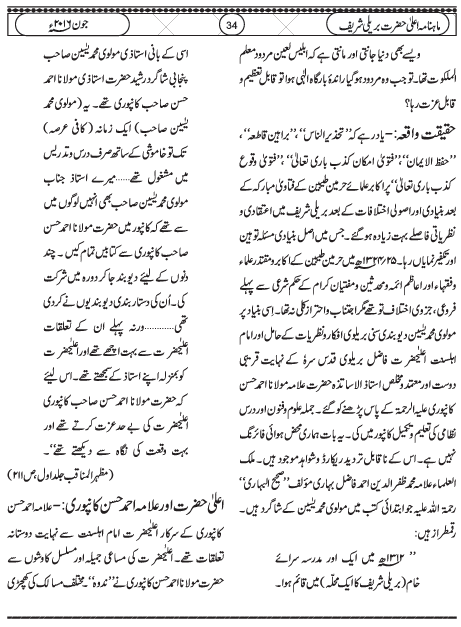 ماہنامہ اعلیٰ حضرت بریلی شریف
34
جون ۲۰۱۶ء
ویسے بھی دنیا جانتی اور مانتی ہے کہ ابلیس لعین مردود معلم
الملکوت تھا۔ تو جب وہ مردود ہو گیا راندۂ بارگاہ الٰہی ہوا تو قابل تعظیم و
قابل عزت رہا؟
حقیقت واقعہ:- یاد رہے کہ ”تحذیر الناس“، ”براہین قاطعہ“،
”حفظ الایمان“، ”فتویٰ امکان کذب باری تعالیٰ“، ”فتویٰ وقوع
کذب باری تعالیٰ“ پر اکابر علمائے حرمین طیبین کے فتاویٰ مبارکہ کے
بعد بنیادی اور اصولی اختلافات کے بعد بریلی شریف میں اعتقادی و
نظریاتی فاصلے بہت زیادہ ہو گئے۔ جس میں اصل بنیادی مسئلہ توہین
اور تکفیر نمایاں رہا۔ ۱۳۲۴/۲۵ھ میں حرمین طیبین کے اکابر و مقتدر علماء
و فقہاء اور اعاظم ائمہ و محدثین و مفتیان کرام کے حکم شرعی سے پہلے
فروعی، جزوی اختلاف تو تھے مگر اجتناب و احتراز کلی نہ تھا۔ اسی بنیاد پر
مولوی محمد یٰسین دیوبندی سنی بریلوی افکار و نظریات کے حامل اور امام
اہلسنت اعلیٰحضرت فاضل بریلوی قدس سرہ کے نہایت قریبی
دوست اور معتقد و مخلص استاذ الاساتذہ حضرت علامہ مولانا احمد حسن
کانپوری علیہ الرحمۃ کے پاس پڑھنے کو گئے۔ جملہ علوم و فنون اور درس
نظامی کی تعلیم و تکمیل کانپور میں کی۔ یہ بات ہماری محض ہوائی فائرنگ
نہیں ہے۔ اس کے ناقابل تردید ریکارڈ و شواہد موجود ہیں۔ ملک
العلماء علامہ محمد ظفر الدین احمد فاضل بہاری مؤلف ”صحیح البہاری“
رحمۃ اللہ علیہ جو ابتدائی کتب میں مولوی محمد یٰسین کے شاگرد ہیں۔
رقمطراز ہیں:
”۱۳۱۲ھ میں ایک اور مدرسہ سرائے
خام (بریلی شریف کا ایک محلّہ) میں قائم ہوا۔
اسی کے بانی استاذی مولوی محمد یٰسین صاحب
پنجابی شاگرد رشید حضرت استاذی مولانا احمد
حسن صاحب کانپوری تھے۔ یہ (مولوی محمد
یٰسین صاحب) ایک زمانہ (کافی عرصہ)
تک تو خاموشی کے ساتھ صرف درس و تدریس
میں مشغول تھے……میرے استاذ جناب
مولوی محمد یٰسین صاحب بھی انہیں لوگوں میں
سے تھے کہ کانپور میں حضرت مولانا احمد حسن
صاحب کانپوری سے کتابیں تمام کیں۔ چند
دنوں کے لیئے دیوبند جا کر دورہ میں شرکت
کی۔ اُن کی دستار بندی دیوبندیوں نے کردی
تھی…………ورنہ پہلے ان کے تعلقات
اعلیٰحضرت سے بہت اچھے تھے اور اعلیٰحضرت
کو بمنزلہ اپنے استاذ کے سمجھتے تھے۔ اس لیئے
کہ حضرت مولانا احمد حسن صاحب کانپوری
اعلیٰحضرت کی بے حد عزت کرتے تھے اور
بہت وقعت کی نگاہ سے دیکھتے تھے“۔
(مظہر المناقب جلد اول، ص ۲۱۱)
اعلیٰ حضرت اور علامہ احمد حسن کانپوری:- علامہ احمد حسن
کانپوری کے سرکار اعلیٰحضرت امام اہلسنت سے نہایت دوستانہ
تعلقات تھے۔ اعلیٰحضرت کی مساعی جمیلہ اور مسلسل کاوشوں سے
حضرت مولانا احمد حسن کانپوری نے ”ندوہ“۔ مختلف مسالک کی کھچڑی